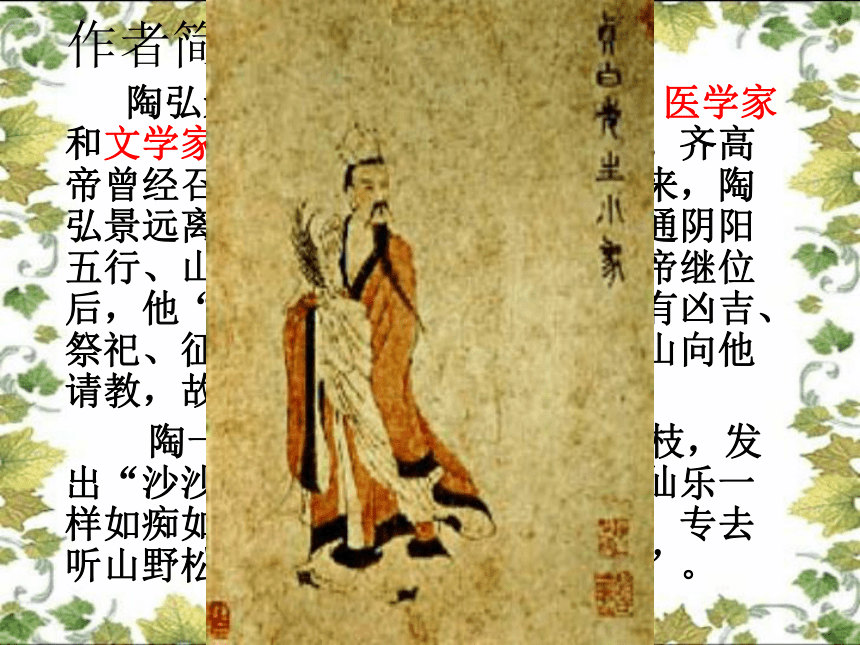 作者简
陶弘 医学家
和文学家 齐高
帝曾经召 来，陶
弘景远离 通阴阳
五行、山 帝继位
后，他“ 有凶吉、
祭祀、征 山向他
请教，故
陶一 枝，发
出“沙沙 仙乐一
样如痴如 专去
听山野松 ”。
贞白先生小象